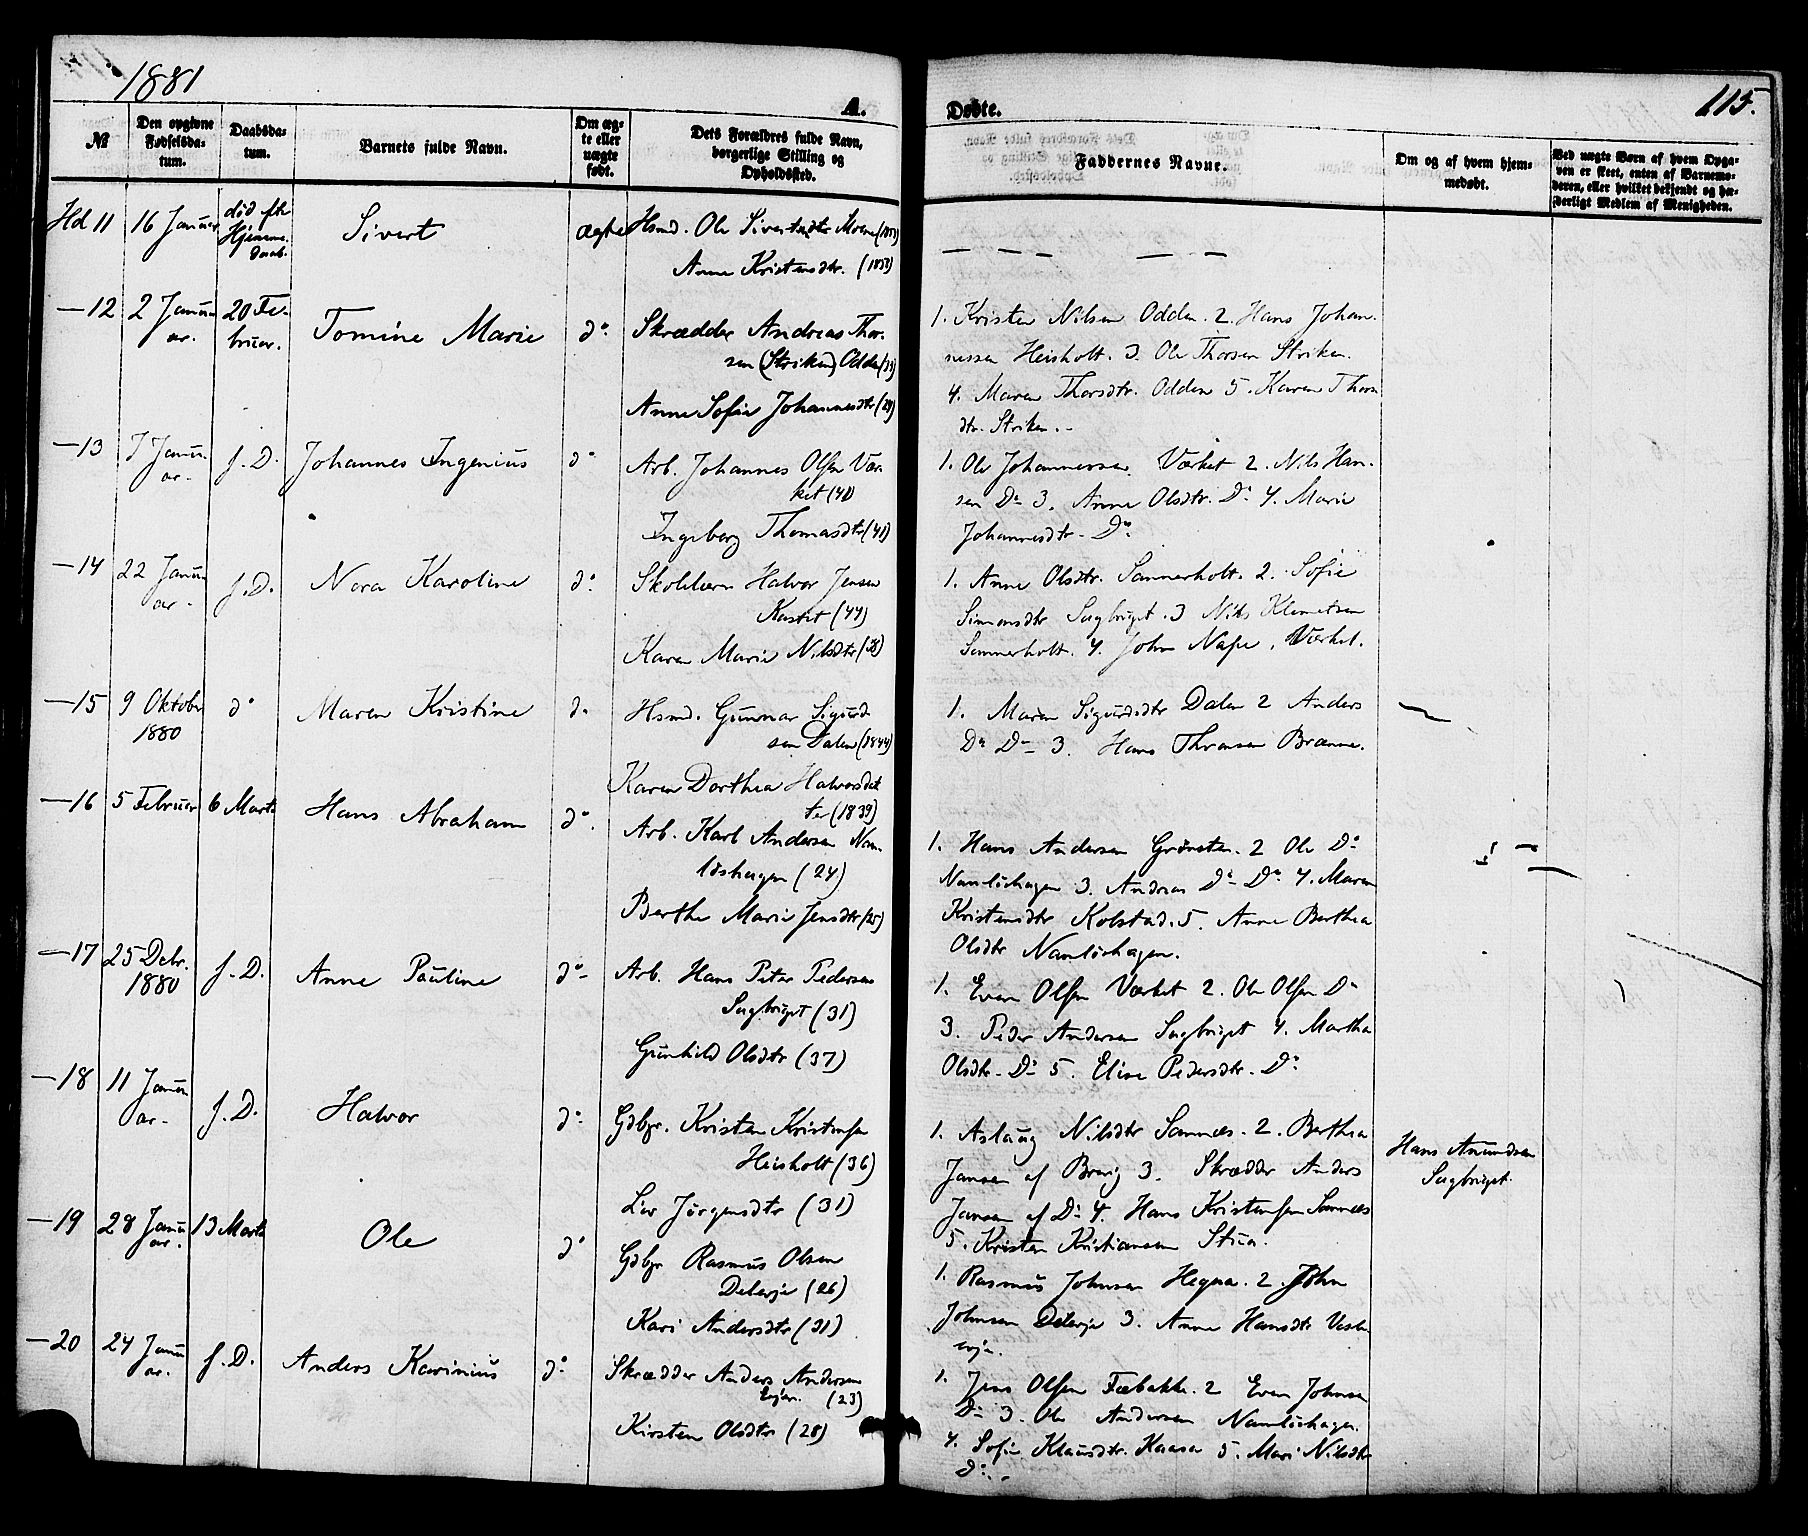 1881
A.
Døbte.
115.
№
Den opgivne Fødselsda-tum.
Daabsda-tum.
Barnets fulde Navn.
Om æg-te eller uægte født.
Dets Forældres fulde Navn, borgerlige Stilling og Opholdssted.
Faddernes Navne.
Om og af hvem hjem-medøbt.
Ved uægte Børn af hvem Opga-ven er skeet, enten af Barnemo-deren, eller hvilket bekjendt og hæ-derligt Medlem af Menigheden.
Hd 11 16 Januar død fth Hjemme-daab. Sivert ægte Hsmd. Ole Moene
Anne Kristensdtr.
— — — — —
—12 2 Januar. 20 Fe-bruar. Tomine Marie do Skrædder Andreas Thor-
sen (Striken) Odden
Anne Sofie Johannesdtr (29)
1. Kristen Nilsen Odden. 2. Hans Johan-
nessen Heisholt. 3. Ole Thorsen Striken.
4. Maren Thorsdtr. Odden 5. Karen Thors
dtr. Striken. -
—13 7 Januar. f. D. Johannes Ingenius do Arb. Johannes Olsen Vær-
ket (41)
Ingeborg Thomasdtr (41)
1. Ole Johannessen. Værket 2. Nils Han-
sen Do 3. Anne Olsdtr. Do 4. Marie
Johannesdtr. Do
—14 22 Januar. f. D. Nora Karoline do Skolelærer Halvor Jensen
Kastet (44)
Karen Marie Nilsdtr (38)
1. Anne Olsdtr. Sannerholt. 2. Sofie
Simonsdtr Sagbruget. 3 Nils Klemetsen
Sannerholt. 4. John Værket.
—15 9 Oktober 1880 do Maren Kristine do Hsmd. Gunnar Sigurd-
sen Dalen (1844)
Karen Dorthea Halvorsdat
ter (1839)
1. Maren Sigurdsdtr Dalen 2 Anders
Do Do 3. Hans Thronsen Brænne.
—16 5 Februar 6 Marts Hans Abraham do. Arb. Karl Andersen Nam-
løshagen (24)
Berthe Marie Jensdtr (25)
1. Hans Andersen Grønsten. 2 Ole Do
Namløshagen 3. Andreas Do Do 4. Maren
Kristensdtr Kolstad. 5. Anne Berthea
Olsdtr Namløshagen.
—17 25 Debr. 1880 f. D. Anne Pauline do Arb. Hans Peter Pedersen
Sagbruget (31)
Gunhild Olsdtr (37)
1. Even Olsen Værket 2. Ole Olsen Do
3. Peder Andersen Sagbruget 4. Martha
Olsdtr. Do 5. Elise Pedersdtr. Do
—18 11 Januar. f. D. Halvor do Gdbgr. Kristen Kristensen
Heisholt (36)
Liv Jørgensdtr (31)
1. Aslaug Nilsdtr Sannes. 2. Berthea
Jansen af Brevig 3. Skrædder Anders
Jansen af Do 4. Hans Kristensen Sannes
5. Kristen Kristiansen Stua.
Hans Amundsen
Sagbruget.
—19 28 Januar. 13 Marts Ole do Gdbgr Rasmus Olsen
Deleeje (26)
Kari Andersdtr (31)
1. Rasmus Johnsen Hegna. 2. John
Johnsen Deleeje 3. Anne Hansdtr Vestre
eeje.
—20 24 Januar. f. D. Anders Karinius do Skrædder Anders Andersen
(23)
Kirsten Olsdtr (28)
1. Jens Olsen Fæbakke. 2 Even Johnsen
Do 3. Ole Andersen Namløshagen.
4. Sofie Klausdtr. Kaasa 5. Mari Nilsdtr
Do. -